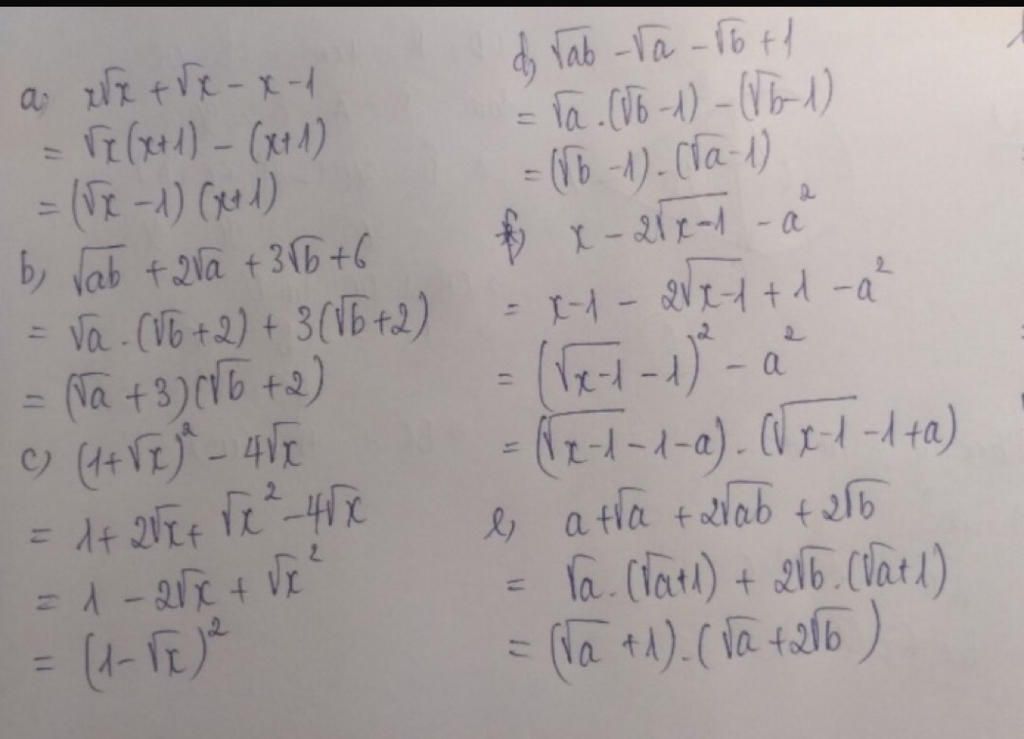 a, x√x + √x - x - 1
= √x(x+1) - (x+1)
= (√x - 1)(x+1)
b, √ab + 2√a + 3√b + 6
= √a . (√b + 2) + 3(√b + 2)
= (√a + 3)(√b + 2)
c, (1+√x)² - 4√x
= 1 + 2√x + √x² - 4√x
= 1 - 2√x + √x²
= (1-√x)²
d, √ab - √a - √b + 1
= √a . (√b - 1) - (√b - 1)
= (√b - 1) . (√a - 1)
f, x - 2√x-1 - a²
= x-1 - 2√x-1 + 1 - a²
= (√x-1 - 1)² - a²
= (√x-1 - 1 - a) . (√x-1 - 1 + a)
e, a + √a + 2√ab + 2√b
= √a . (√a+1) + 2√b . (√a+1)
= (√a + 1) . (√a + 2√b)